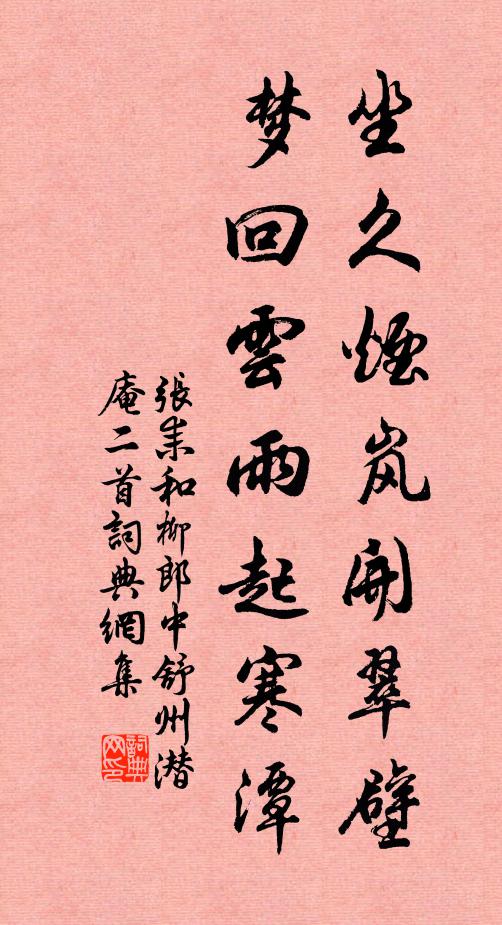 坐久煙岚開翠壁
梦回雲雨起寒潭
張耒和柳郎中舒州潜
庵二首詞典網集
詞典网印